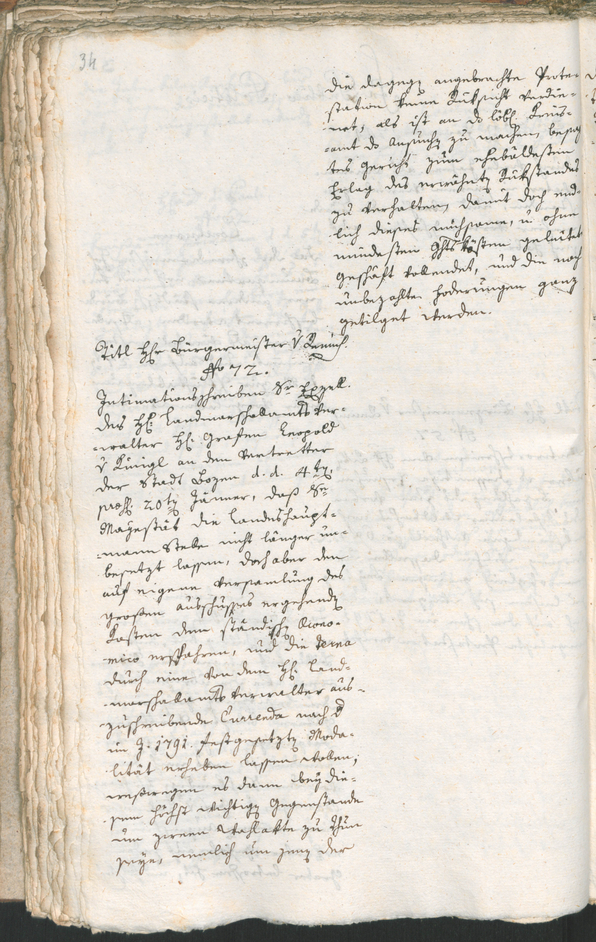 34
die dagegen angebrachte Prote-
station keine Rüksicht verdie-
net; als ist an das löbl. Kreis-
amt das Ansuchen zu machen, besag-
tes Gericht zum ehebäldesten
Erlag des erwähnten Rükstandes
zu verhalten, damit doch end-
lich dieses mühsame, u. ohne
mindesten kösten geleitete
Geschäft vollendet, und die noch
unbezahlte Foderungen ganz
getilget werden.
Titl Hr. Bürgermeister v
No 72.
Intimationsschreiben Sr Exzell.
des H. Landmarschallamts Ver-
walter H. Grafen Leopold
v Künigl an den Vertretter
der Stadt Bozen d. d. 4ten
20ten Jänner, daß Se
Mayestät die Landeshaupt-
mann Stelle nicht länger un-
besetzt lassen, doch aber den
auf eigene Versamlung des
großen Ausschusses ergehenden
Kosten dem ständischen Aerono-
mico ersparen, und die Terna
durch eine von dem H. Land-
marschallamts Verwalter aus-
zuschreibende Currenda nach d
im J. 1791. festgesetzten Moda-
lität erheben lassen wollen;
weßwegen es dann bey die-
sem höchst wichtigen Gegenstande
um zween Wahlakte zu thun
seye, nemlich um jenen der